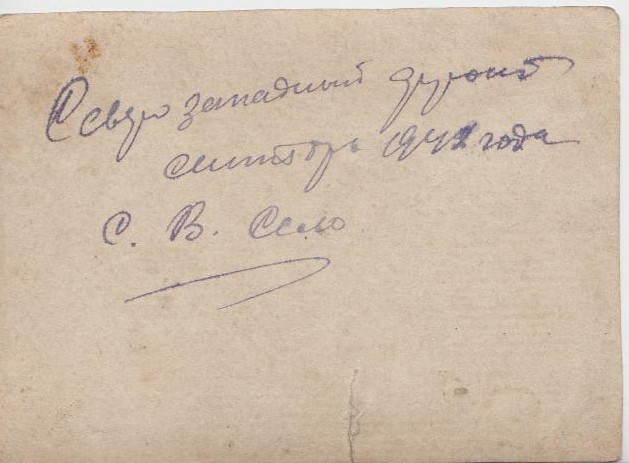 Северо западный фронт
сентябрь 1942 года
С. В. Село